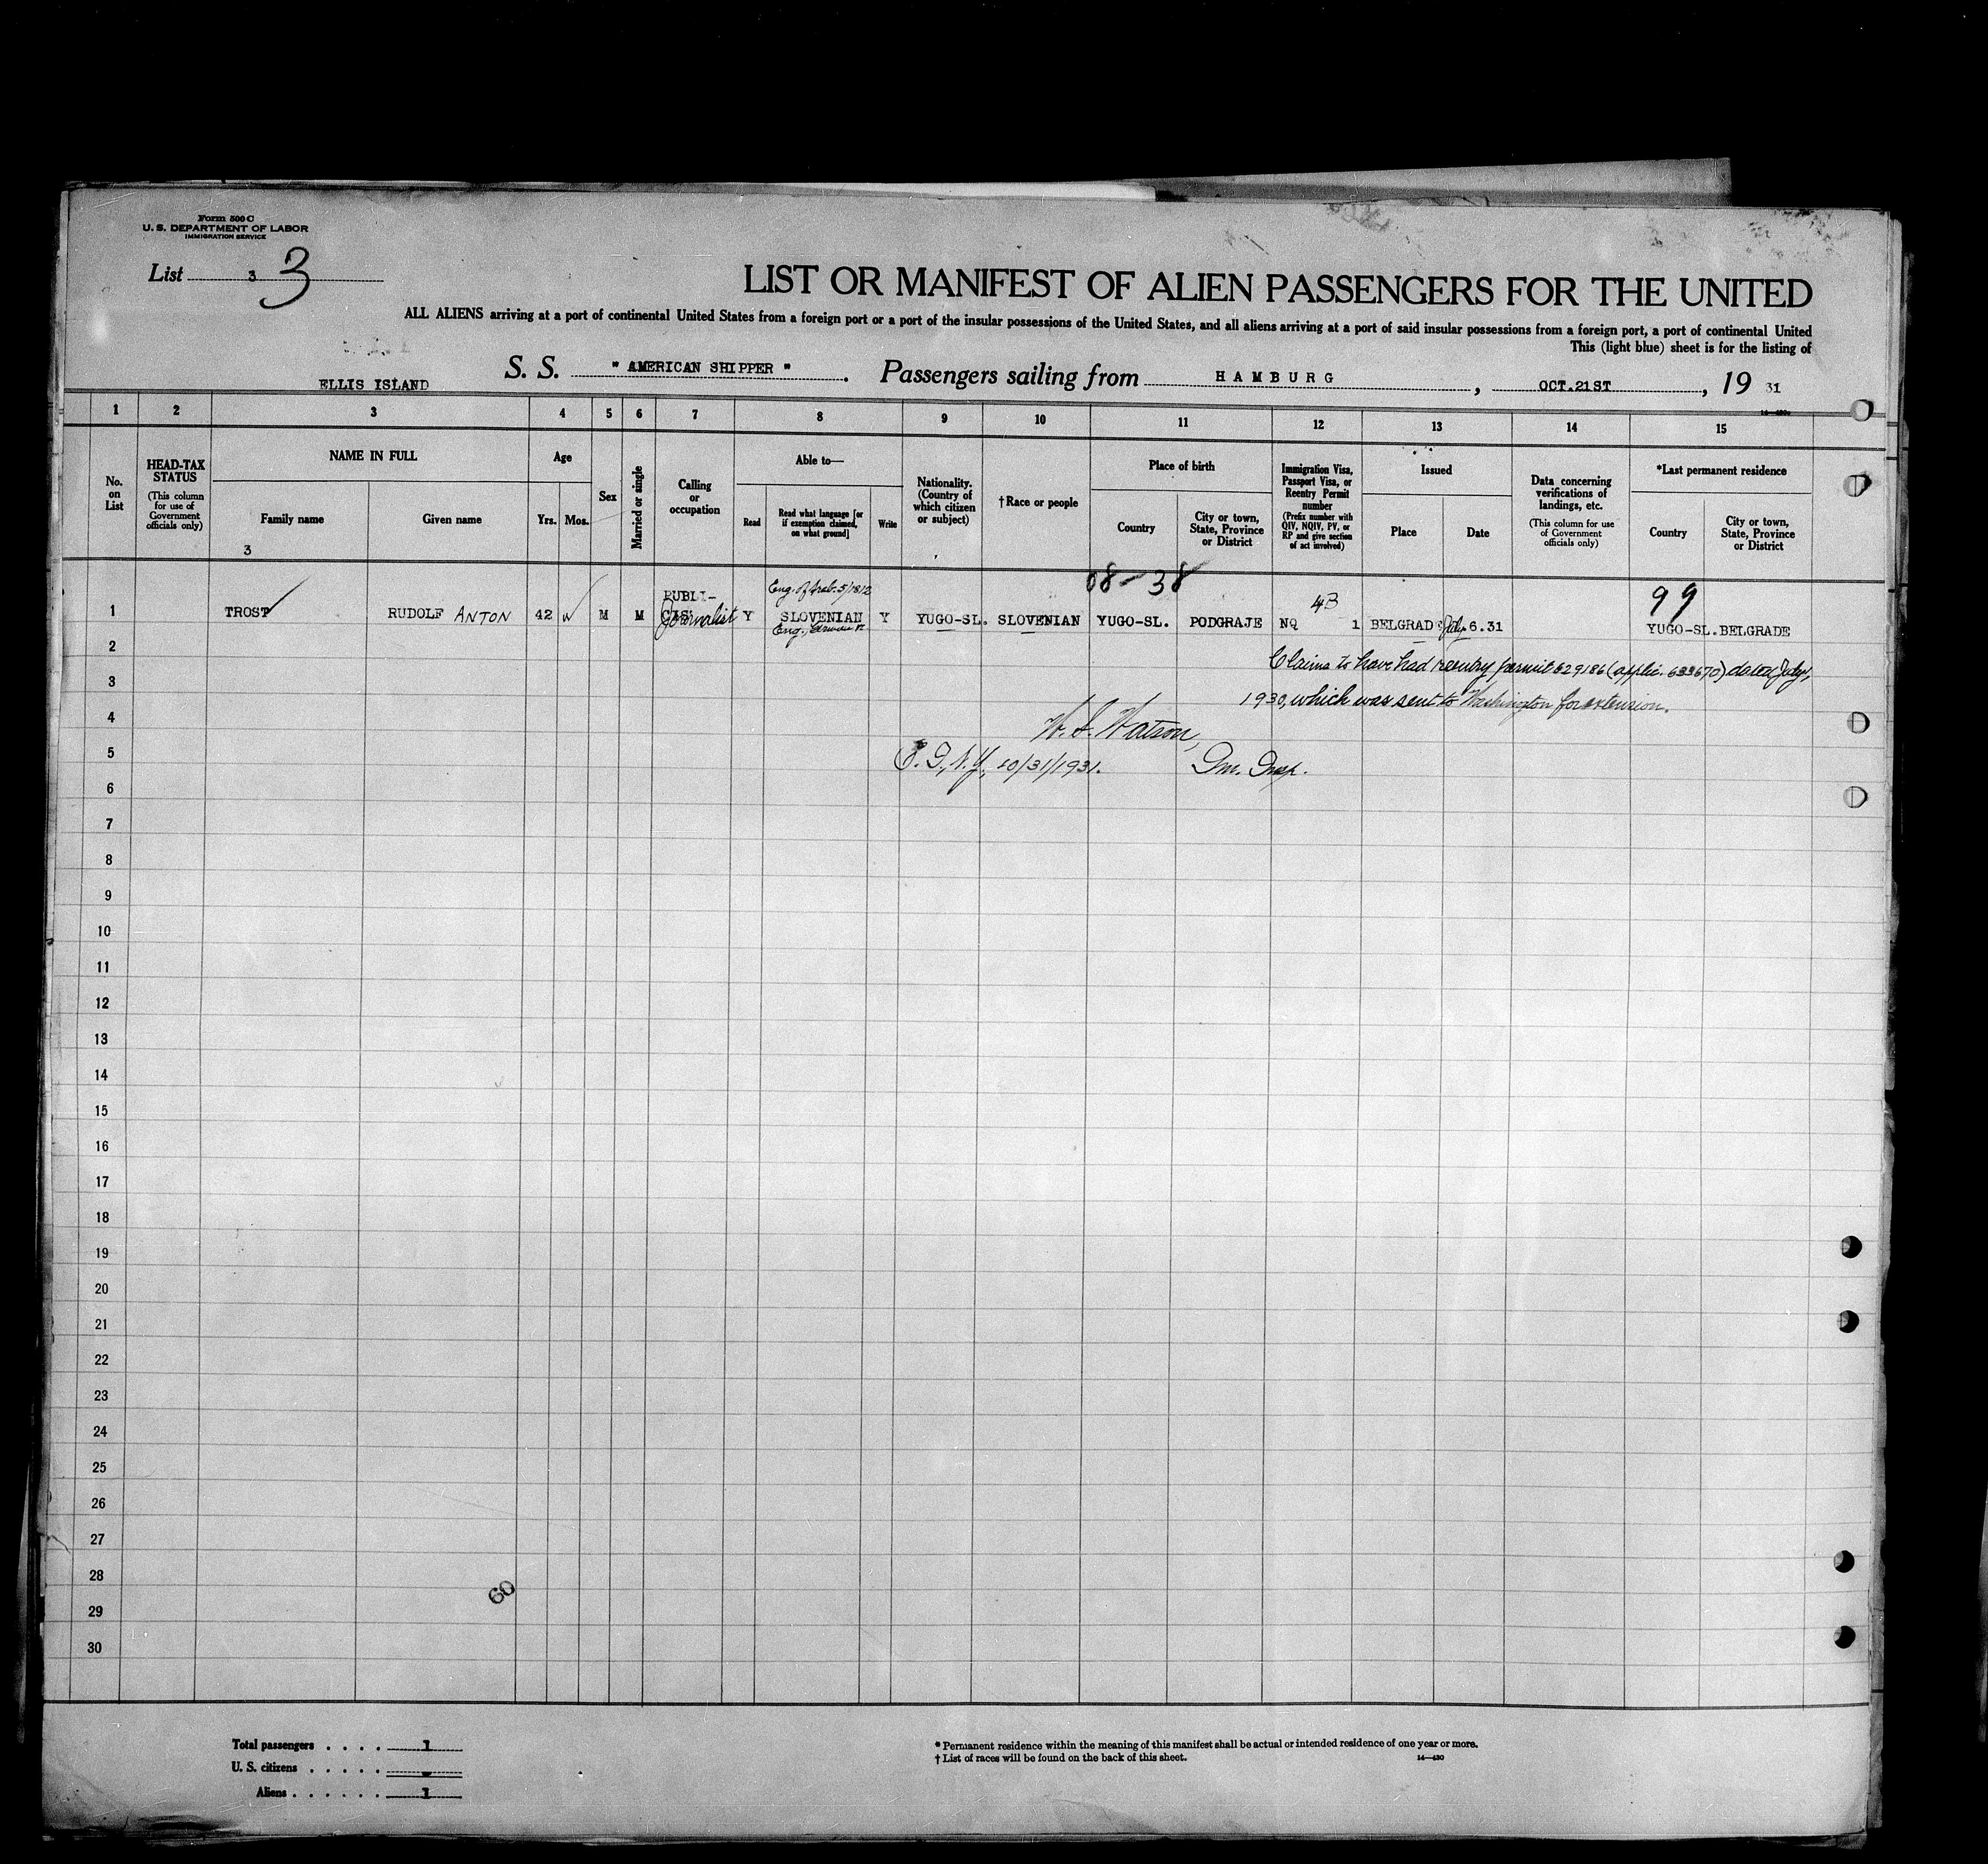 Form 500 C
U. S. DEPARTMENT OF LABOR
IMMIGRATION SERVICE
List 3 3
LIST OR MANIFEST OF ALIEN PASSENGERS FOR THE UNITED
ALL ALIENS arriving at a port of continental United States from a foreign port or a port of the insular possessions of the United States, and all aliens arriving at a port of said insular possessions from a foreign port, a port of continental United
This (light blue) sheet is for the listing of
ELLIS ISLAND S. S. " AMERICAN SHIPPER ". Passengers sailing from HAMBURG, OCT.21ST, 19 31
14-430
1 2 3 4 5 6 7 8 9 10 11 12 13 14 15
No. on List
HEAD-TAX STATUS (This column for use of Government officials only)
NAME IN FULL
Family name
Given name
3
Age
Yrs. Mos.
Sex
Married or single
Calling or occupation
Able to—
Read
Read what language [or if exemption claimed, on what ground]
Write
Nationality. (Country of which citizen or subject)
†Race or people
Place of birth
Country
City or town, State, Province or District
Immigration Visa, Passport Visa, or Reentry Permit number (Prefix number with QIV, NQIV, PV, or RP and give section of act involved)
Issued
Place
Date
Data concerning verifications of landings, etc. (This column for use of Government officials only)
*Last permanent residence
Country
City or town, State, Province or District
08-38
PUBLI-
4B
99
1 TROST RUDOLF ANTON 42 M M CIST Journalist Y SLOVENIAN Y YUGO-SL. SLOVENIAN YUGO-SL. PODGRAJE NQ 1 BELGRADE July 6.31 YUGO-SL. BELGRADE
Eng.,
2
Claims to have had reentry permit 629186 (applic. 633670) dated July,
3
1930, which was sent to Washington for extension.
4
W. J. Watson,
5
E. I., N.Y., 10/31/1931. Im. Insp.
6
7
8
9
10
11
12
13
14
15
16
17
18
19
20
21
22
23
24
25
26
27
28
60
29
30
Total passengers . . . . 1
U. S. citizens . . . . . -
Aliens . . . . . . 1
* Permanent residence within the meaning of this manifest shall be actual or intended residence of one year or more.
† List of races will be found on the back of this sheet.
14-430